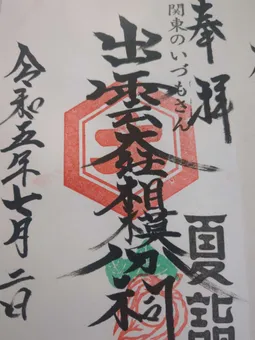 奉拝
関東のいづもさん
出雲大社相模分祠
夏詣
令和五年七月二日